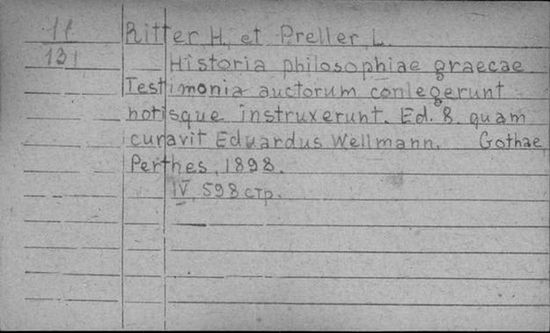 11
131
Ritter, H. et Preller, L.
Historia philosophiae graecae
Testimonia auctorum conlegerunt
notisque instruxerunt. Ed. 8. quam
curavit Eduardus Wellmann. Gothae,
Perthes, 1898.
IV, 598 стр.